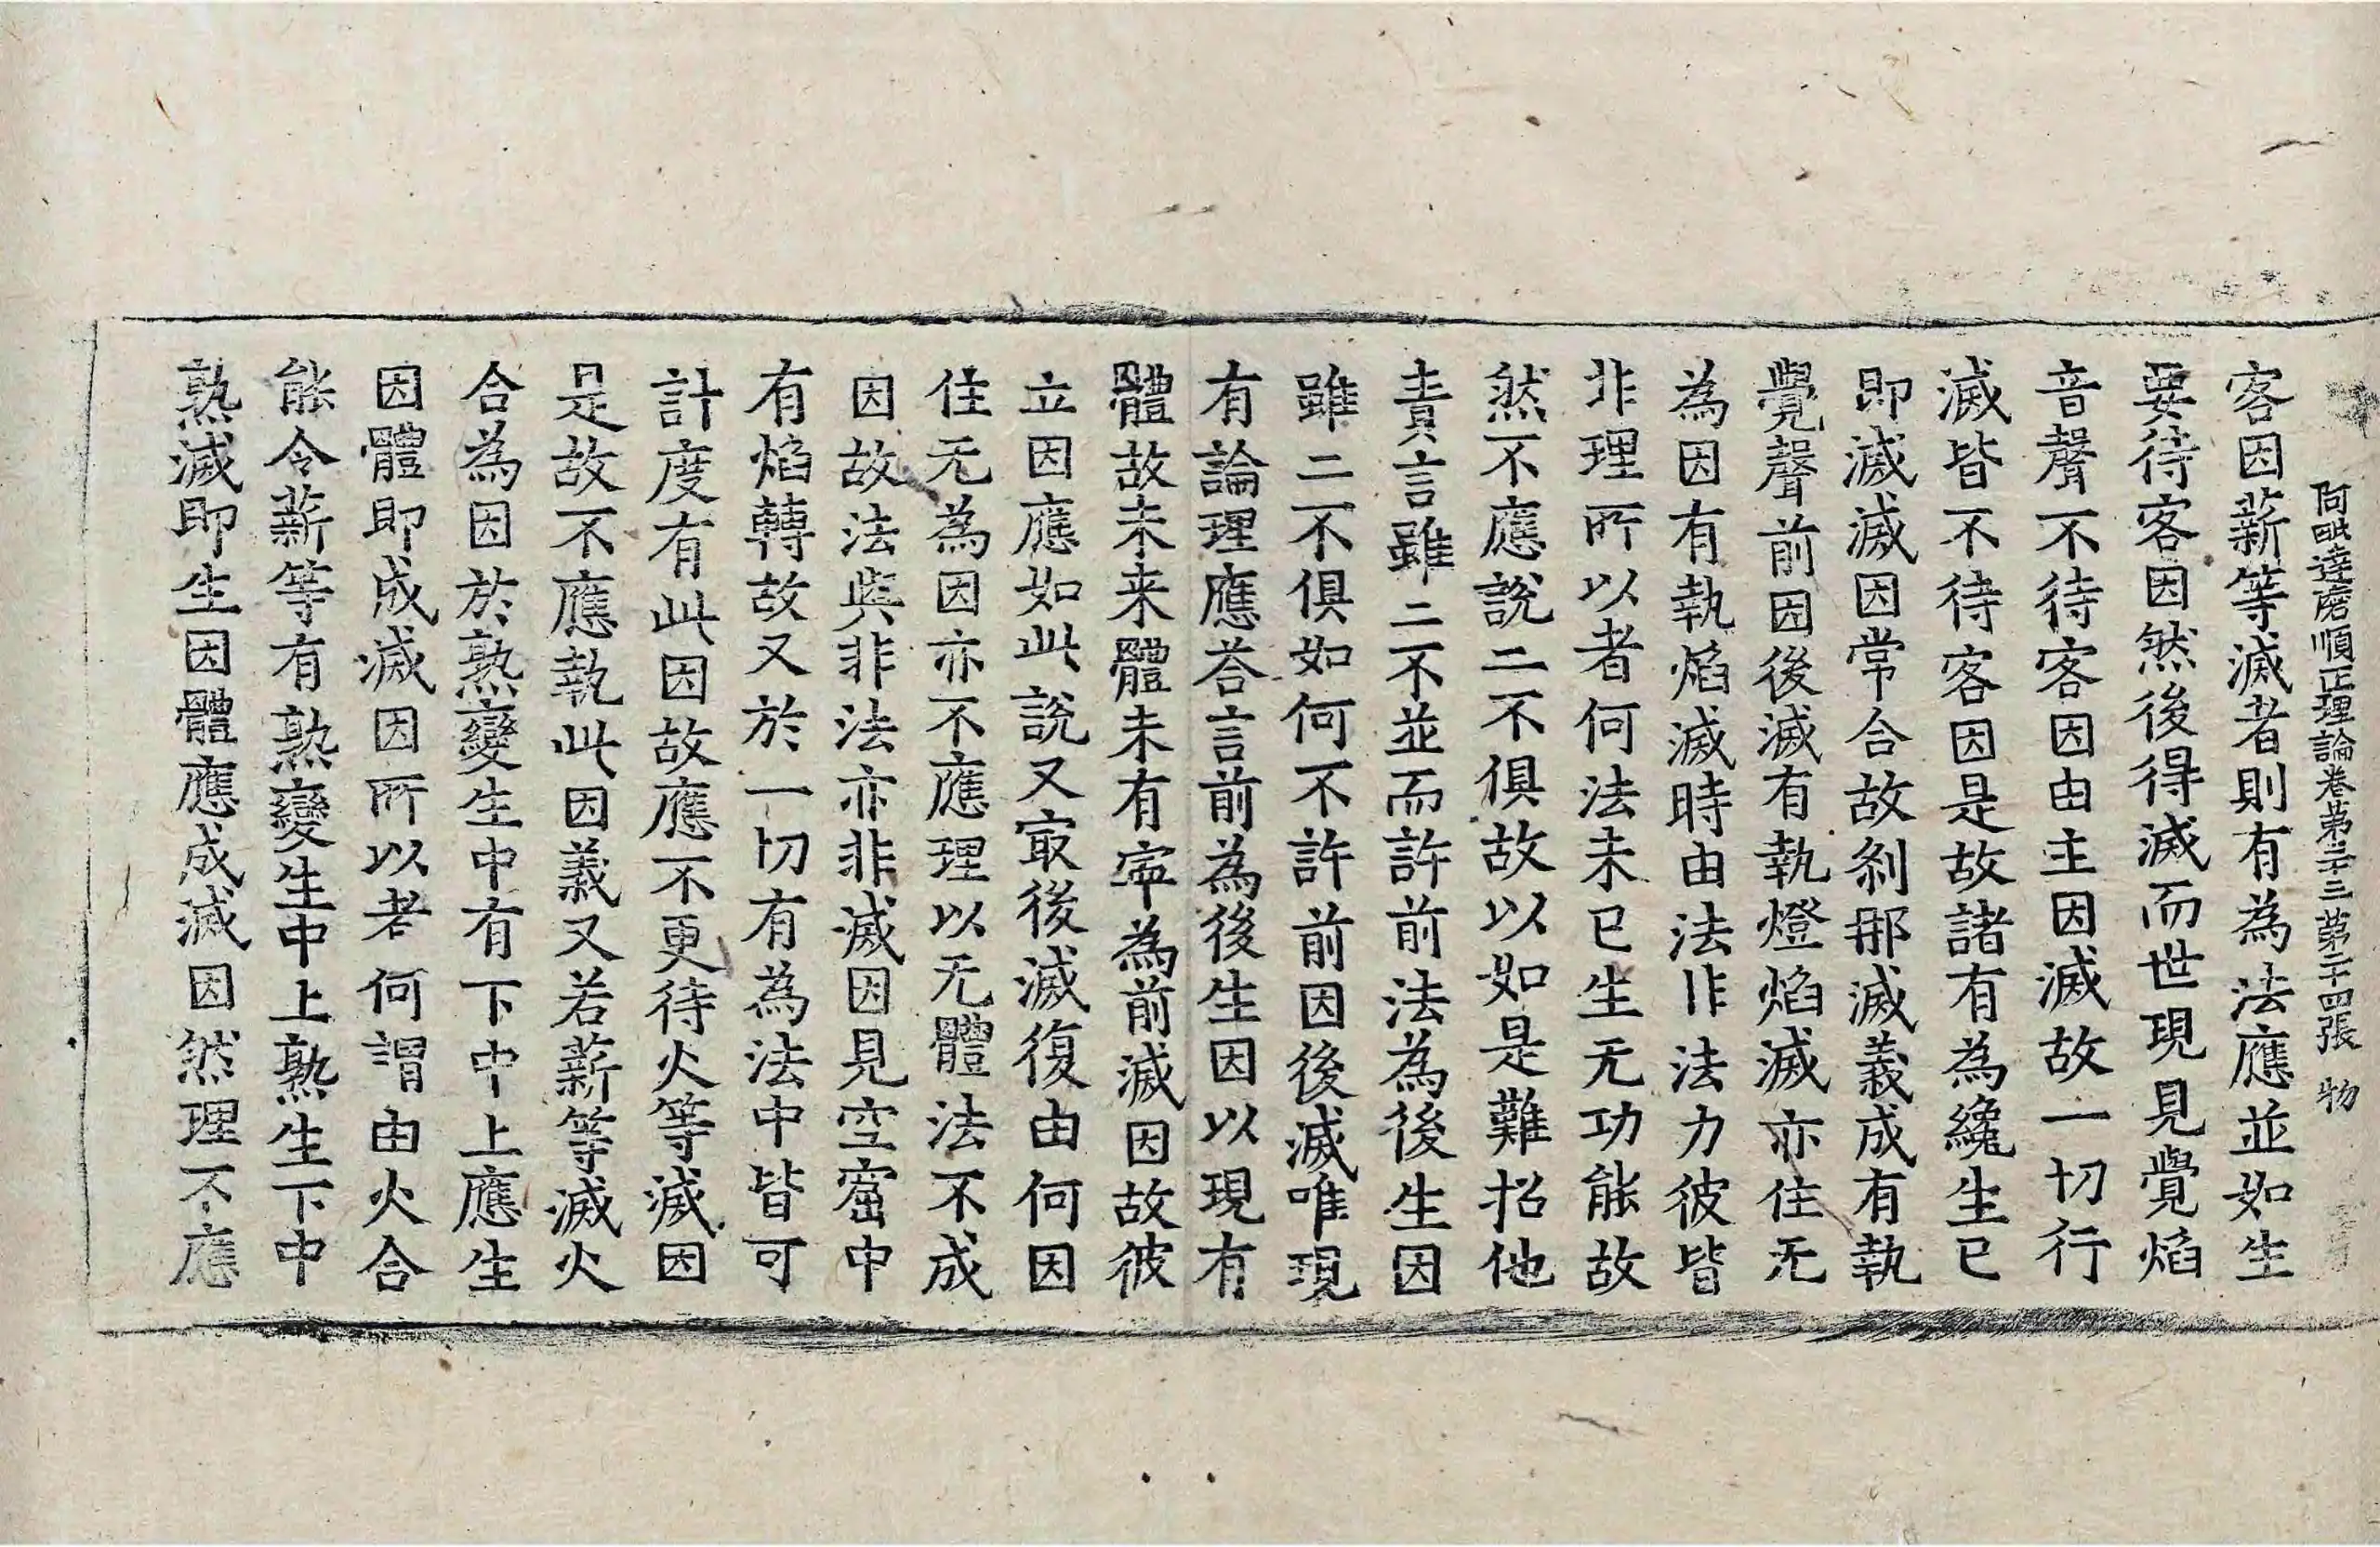 阿毗達磨順正理論卷第三十三 第二十四張 物
客因薪等滅者則有為法應並如生
要待客因然後得滅而世現見覺焰
音聲不待客因由主因滅故一切行
滅皆不待客因是故諸有為纔生已
即滅滅因常合故剎那滅義成有執
覺聲前因後滅有執燈焰滅亦住无
為因有執焰滅時由法非法力彼皆
非理所以者何法未已生无功能故
然不應說二不俱故以如是難招他
責言雖二不並而許前法為後生因
雖二不俱如何不許前因後滅唯現
有論理應荅言前為後生因以現有
體故未来體未有寧為前滅因故彼
立因應如此說又㝡後滅復由何因
住无為因亦不應理以无體法不成
因故法與非法亦非滅因見空窟中
有焰轉故又於一切有為法中皆可
計度有此因故應不更待火等滅因
是故不應執此因義又若薪等滅火
合為因於熟變生中有下中上應生
因體即成滅因所以者何謂由火合
能令薪等有熟變生中上熟生下中
熟滅即生因體應成滅因然理不應